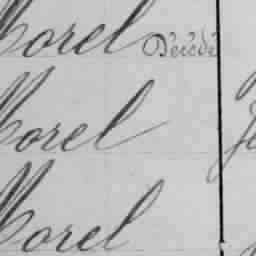 Morel Décédé
Morel
Morel